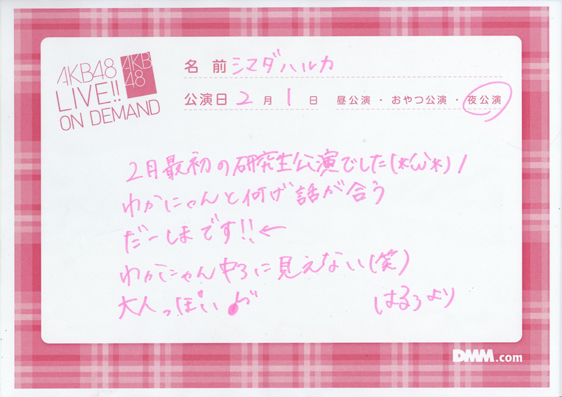 AKB48
LIVE!!
ON DEMAND
AKB
48
名前 シマダハルカ
公演日 2月1日 昼公演・おやつ公演・夜公演
2月最初の研究生公演でした(*'ω'*)/
わかにゃんと何げ話が合う
だーしまです!!←
わかにゃん中3に見えない(笑)
大人っぽい♪
はるぅより
DMM.com